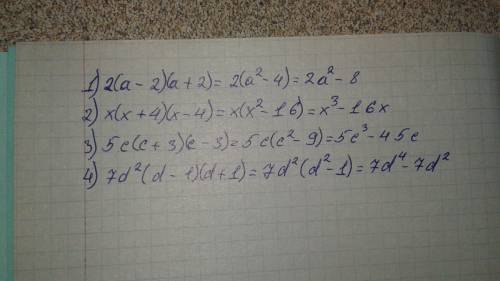 1) 2(a - 2)(a + 2) = 2(a² - 4) = 2a² - 8
2) x(x + 4)(x - 4) = x(x² - 16) = x³ - 16x
3) 5c(c + 3)(c - 3) = 5c(c² - 9) = 5c³ - 45c
4) 7d²(d - 1)(d + 1) = 7d²(d² - 1) = 7d⁴ - 7d²